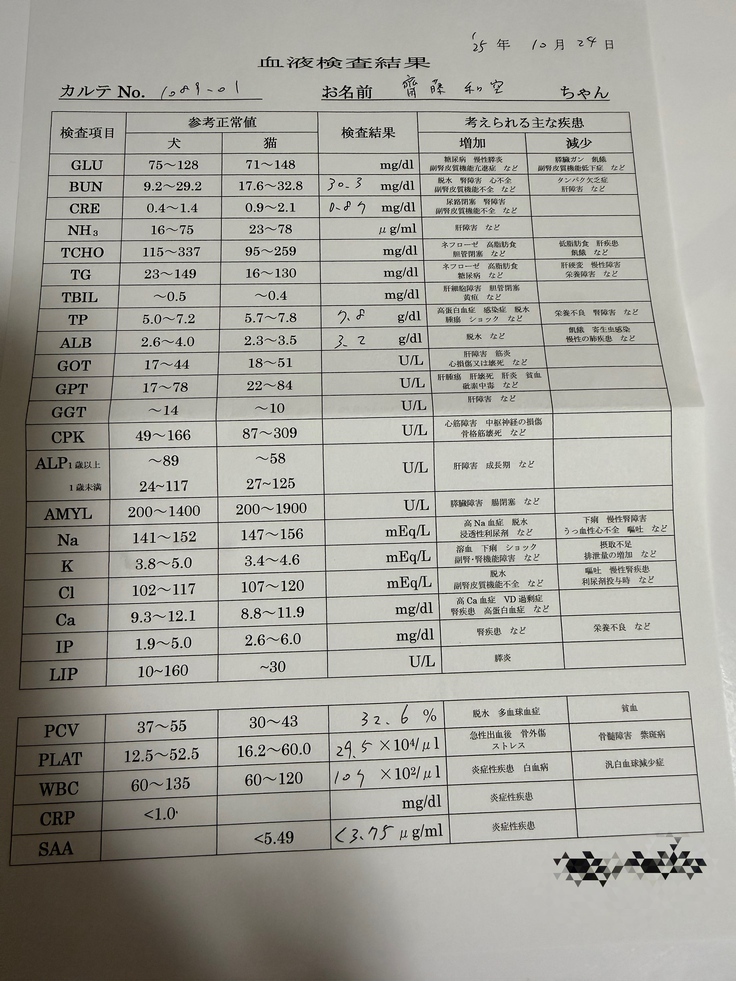 '25 年 10 月 24 日
血液検査結果
カルテ No. 1089-01 お名前 齋藤 和空 ちゃん
検査項目 参考正常値 検査結果 考えられる主な疾患
犬 猫 増加 減少
GLU 75〜128 71〜148 mg/dl 糖尿病 慢性膵炎 副腎皮質機能亢進症 など 膵臓ガン 飢餓 副腎皮質機能低下症 など
BUN 9.2〜29.2 17.6〜32.8 30.3 mg/dl 脱水 腎障害 心不全 副腎皮質機能不全 など タンパク欠乏症 肝障害 など
CRE 0.4〜1.4 0.9〜2.1 0.87 mg/dl 尿路閉塞 腎障害 副腎皮質機能不全 など
NH₃ 16〜75 23〜78 μg/ml 肝障害 など
TCHO 115〜337 95〜259 mg/dl ネフローゼ 高脂肪食 胆管閉塞 など 低脂肪食 肝疾患 飢餓 など
TG 23〜149 16〜130 mg/dl ネフローゼ 高脂肪食 糖尿病 など 肝硬変 慢性障害 栄養障害 など
TBIL 〜0.5 〜0.4 mg/dl 肝細胞障害 胆管閉塞 黄疸 など
TP 5.0〜7.2 5.7〜7.8 7.8 g/dl 高蛋白血症 感染症 脱水 腫瘍 ショック など 栄養不良 腎障害 など
ALB 2.6〜4.0 2.3〜3.5 3.2 g/dl 脱水 など 飢餓 寄生虫感染 慢性の肺疾患 など
GOT 17〜44 18〜51 U/L 肝障害 筋炎 心損傷又は壊死 など
GPT 17〜78 22〜84 U/L 肝腫瘍 肝壊死 肝炎 貧血 砒素中毒 など
GGT 〜14 〜10 U/L 肝障害 など
CPK 49〜166 87〜309 U/L 心筋障害 中枢神経の損傷 骨格筋壊死 など
ALP 1歳以上 〜89 〜58 U/L 肝障害 成長期 など
1歳未満 24~117 27~125
AMYL 200〜1400 200〜1900 U/L 膵臓障害 腸閉塞 など
Na 141〜152 147〜156 mEq/L 高Na血症 脱水 浸透性利尿剤 など 下痢 慢性腎障害 うっ血性心不全 嘔吐 など
K 3.8〜5.0 3.4〜4.6 mEq/L 溶血 下痢 ショック 副腎・腎機能障害 など 摂取不足 排泄量の増加 など
Cl 102〜117 107〜120 mEq/L 脱水 副腎皮質機能不全 など 嘔吐 慢性腎疾患 利尿剤投与時 など
Ca 9.3〜12.1 8.8〜11.9 mg/dl 高Ca血症 VD過剰症 腎疾患 高蛋白血症 など
IP 1.9〜5.0 2.6〜6.0 mg/dl 腎疾患 など 栄養不良 など
LIP 10~160 ~30 U/L 膵炎
PCV 37〜55 30〜43 32.6 % 脱水 多血球血症 貧血
PLAT 12.5〜52.5 16.2〜60.0 29.5 ×10⁴/μl 急性出血後 骨外傷 ストレス 骨髄障害 紫斑病
WBC 60〜135 60〜120 107 ×10²/μl 炎症性疾患 白血病 汎白血球減少症
CRP <1.0 mg/dl 炎症性疾患
SAA <5.49 <3.75 μg/ml 炎症性疾患